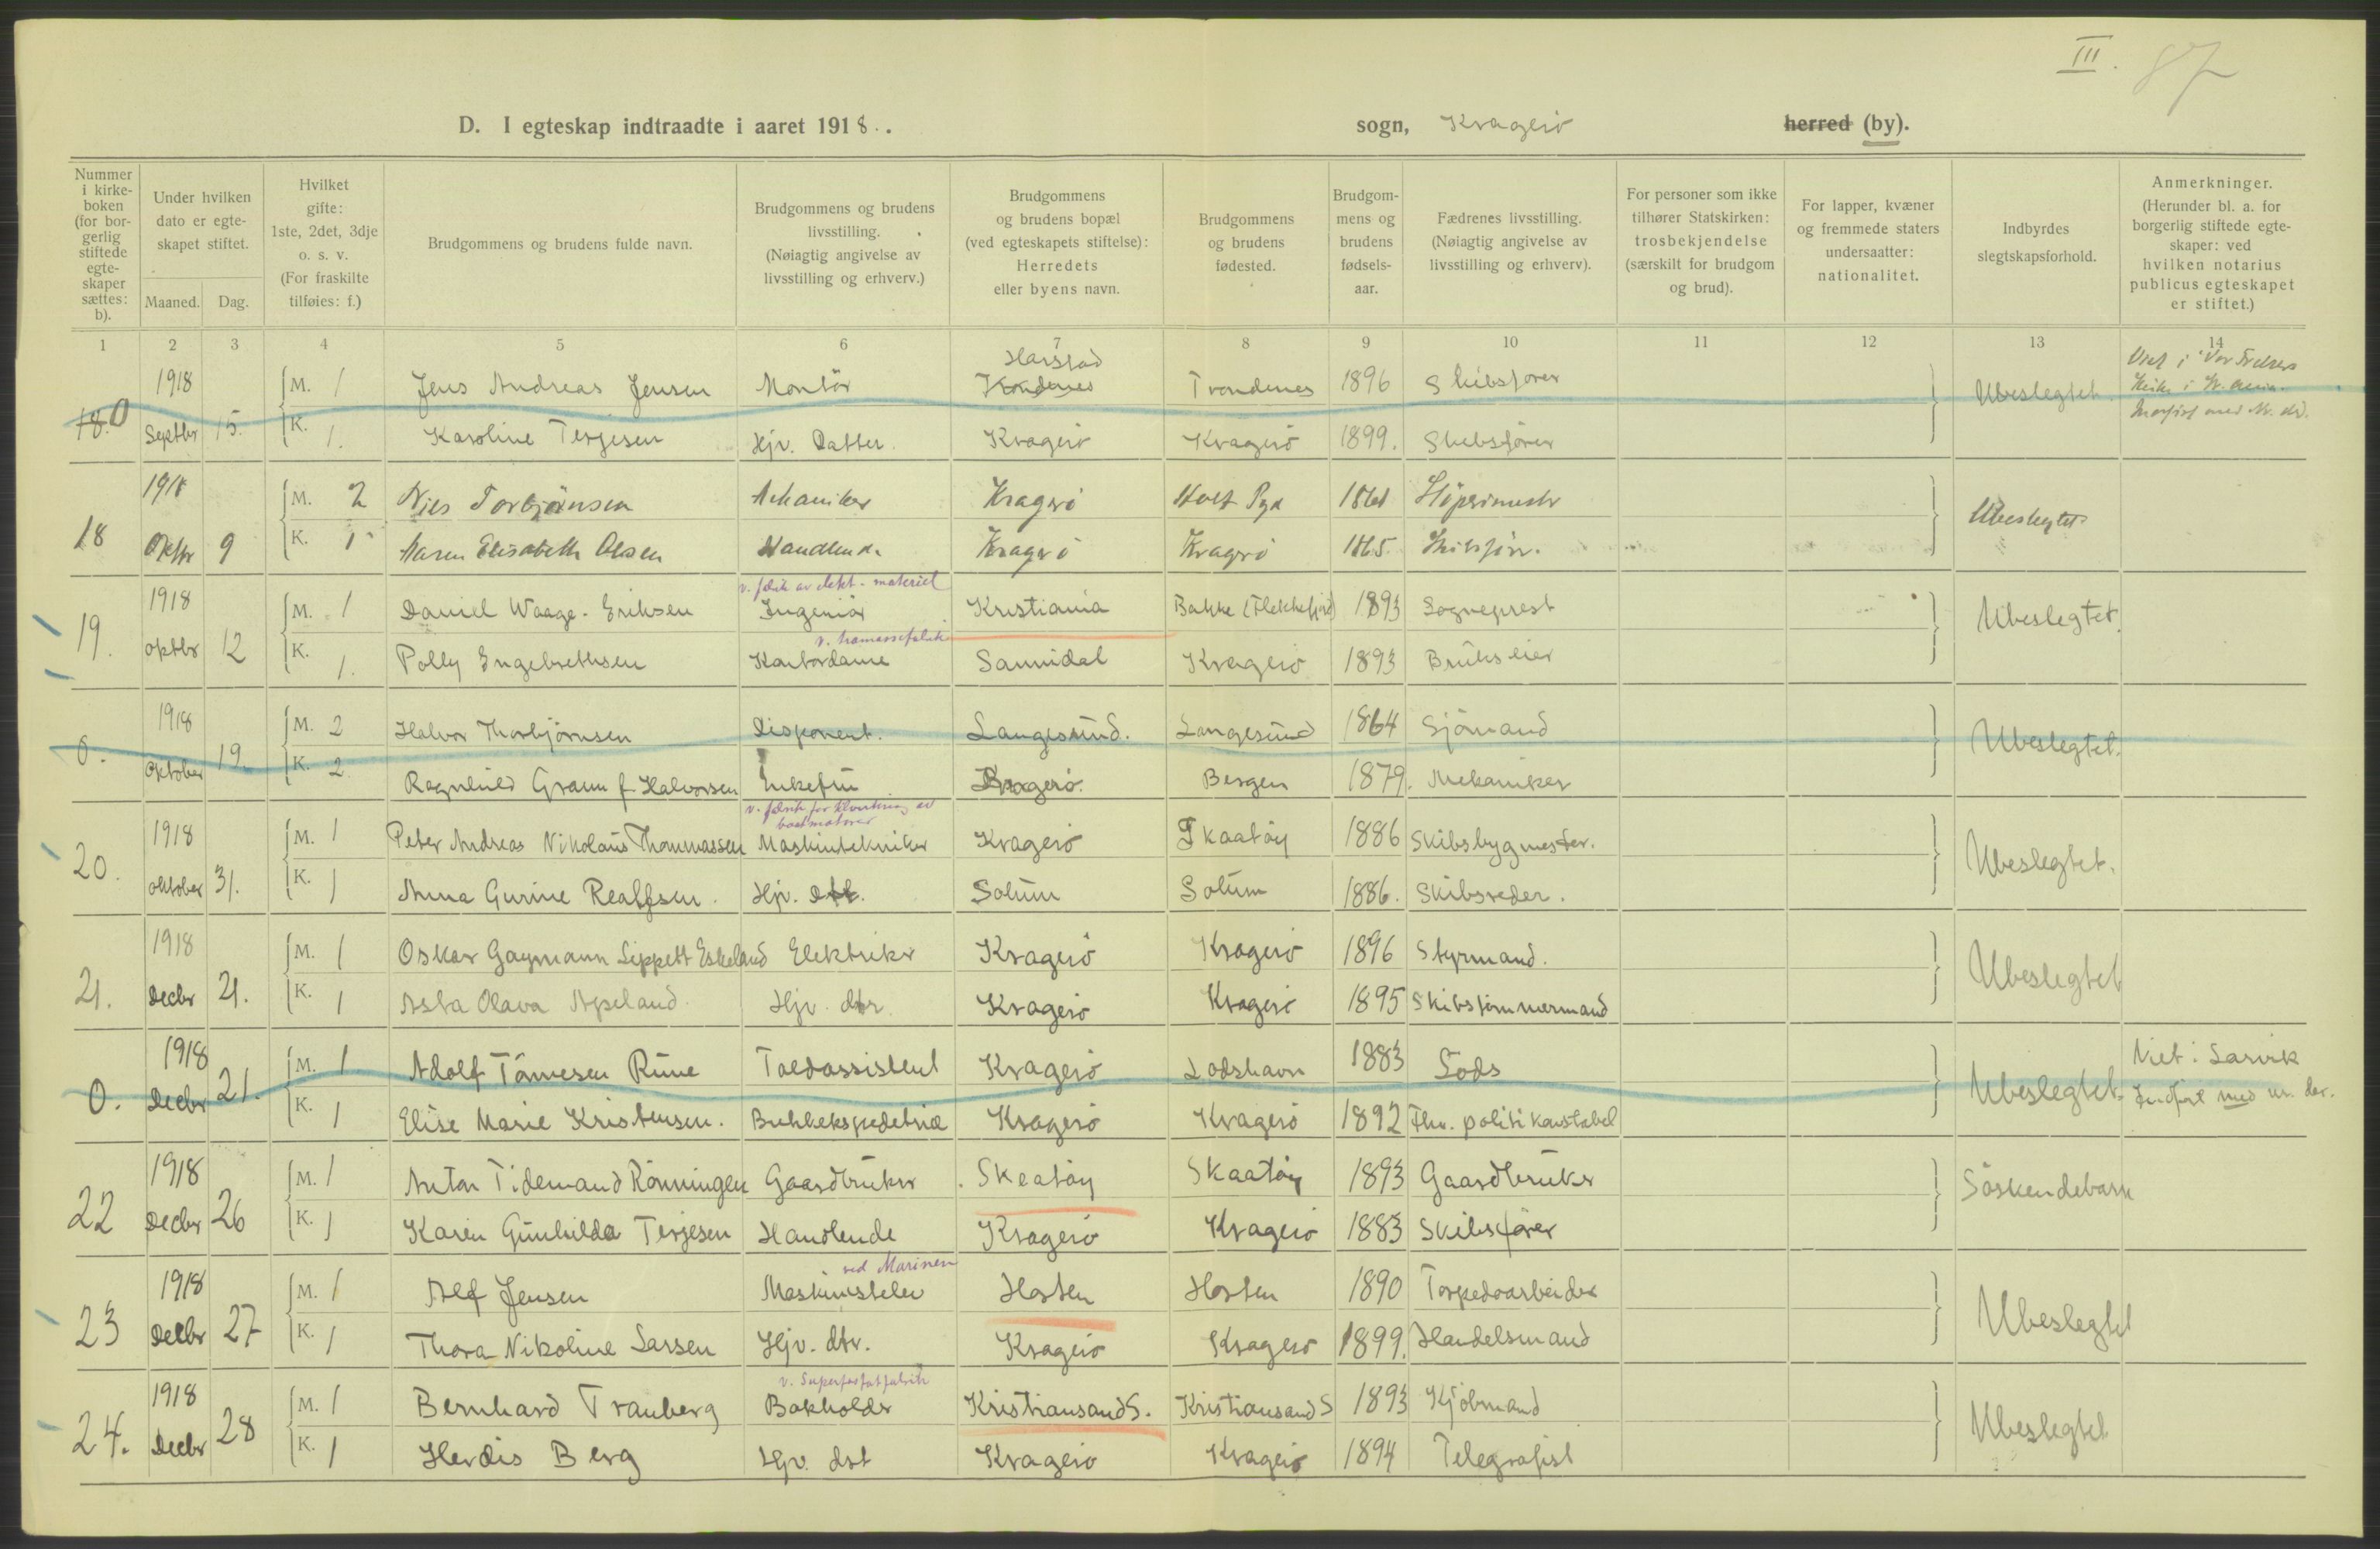 III. 87
D. I egteskap indtraadte i aaret 1918. . sogn, Kragerö herred (by).
Nummer i kirkeboken (for borgerlig stiftede egteskaper sættes: b).
Under hvilken dato er egteskapet stiftet.
Maaned. Dag.
Hvilket gifte: 1ste, 2det, 3dje o. s. v. (For fraskilte tilføies: f.)
Brudgommens og brudens fulde navn.
Brudgommens og brudens livsstilling. (Nøiagtig angivelse av livsstilling og erhverv.)
Brudgommens og brudens bopæl (ved egteskapets stiftelse): Herredets eller byens navn.
Brudgommens og brudens fødested.
Brudgommens og brudens fødselsaar.
Fædrenes livsstilling. (Nøiagtig angivelse av livsstilling og erhverv).
For personer som ikke tilhører Statskirken: trosbekjendelse (særskilt for brudgom og brud).
For lapper, kvæner og fremmede staters undersaatter: nationalitet.
Indbyrdes slegtskapsforhold.
Anmerkninger. (Herunder bl. a. for borgerlig stiftede egteskaper: ved hvilken notarius publicus egteskapet er stiftet.)
1 2 3 4 5 6 7 8 9 10 11 12 13 14
18. 0 1918 Septbr 15. M. 1 Jens Andreas Jensen Montör Harstad Trondenes Trondenes 1896 Skibsförer Ubeslegtet. Viet i Vor Frelsers
K. 1. Karoline Terjesen Hjv. Datter. Kragerö Kragerö 1899. Skibsförer
18 1918 Oktbr 9 M. 2 Nils Torbjörnsen Mekaniker Kragerö Holt 1861 Ubeslegtet
K. 1 Maren Elisabeth Olsen Handlende Kragerö Kragerö 1865. Skibsför.
v. fabr. av elekt. materiel
19. 1918 oktbr 12 M. 1 Daniel Waage-Eriksen Ingeniör Kristiania Bakke (Flekkefjord) 1893 Sogneprest Ubeslegtet.
v. tramassefabrik
K. 1. Polly Engebrethsen Kontordame Sannidal Kragerö 1893 Brukseier
0. 1918 Oktober 19. M. 2 Halvor Thorbjörnsen Disponent. Langesund. Langesund 1864 Sjömand Ubeslegtet.
K. 2. Ragnhild Gram f. Halvorsen Enkefru Kragerö. Bergen 1879. Mekaniker
v. fabrik for av baatmotorer
20. 1918 oktober 31. M. 1 Peter Andreas Nikolaus Thommassen Maskintekniker Kragerö Skaatöy 1886 Skibsbygmester. Ubeslegtet.
K. 1 Anna Gurine Realfsen. Hjv. dtr. Solum Solum 1886. Skibsreder.
21. 1918 Decbr 21. M. 1 Oskar Gaymann Lippett Eskeland Elektriker Kragerö Kragerö 1896 Styrmand. Ubeslegtet
K. 1 Asta Olava Apeland Hjv. dtr. Kragerö Kragerö 1895 Skibstömmermand
0. 1918 Decbr 21. M. 1 Adolf Tönnesen Rune Toldassistent Kragerö Lodshavn 1883 Lods Ubeslegtet. Viet i Larvik
K. 1 Elise Marie Kristensen. Butikekspeditrice Kragerö Kragerö 1892 Fhv. politikonstabel Indfört med nr. der.
22 1918 Decbr 26 M. 1 Anton Tidemand Rönningen Gaardbruker Skaatöy Skaatöy 1893 Gaardbruker Söskendebarn
K. 1 Karen Gunhilda Terjesen Handlende Kragerö Kragerö 1883 Skibsförer
ved Marinen
23 1918 Decbr 27 M. 1 Alf Jensen Maskinistelev Horten Horten 1890 Torpedoarbeider Ubeslegtet
K. 1 Thora Nikoline Larsen Hjv. dtr. Kragerö Kragerö 1899. Handelsmand
v. Superfosfatfabrik
24. 1918 Decbr 28 M. 1 Bernhard Tranberg Bokholder Kristiansand S. Kristiansand S 1893 Kjöbmand Ubeslegtet
K. 1 Herdis Berg Hjv. dat Kragerö Kragerö 1894 Telegrafist